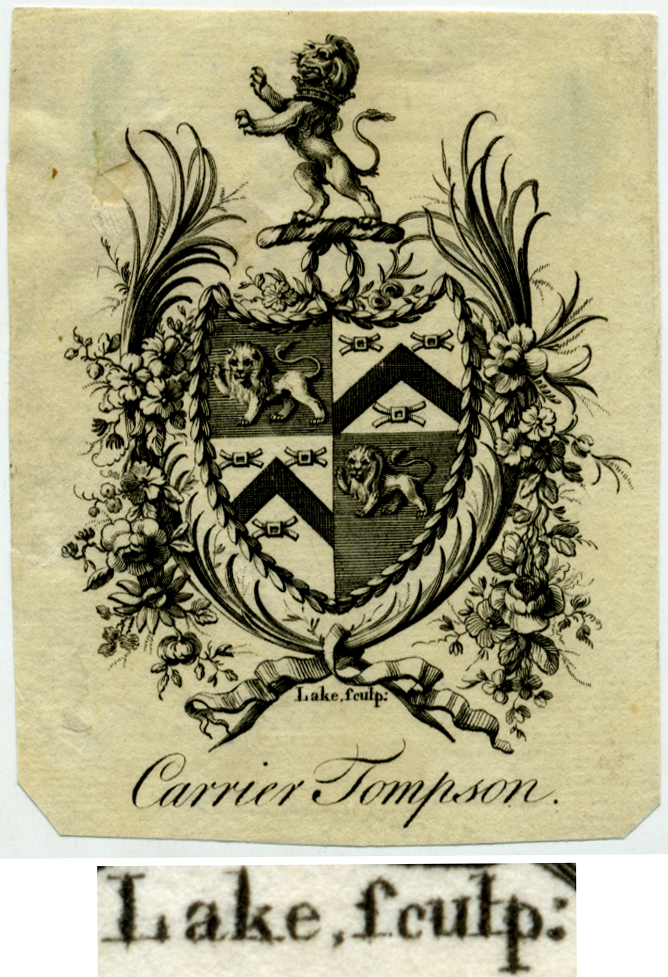 Lake, ſculp:
Carrier Tompson.
Lake, ſculp: